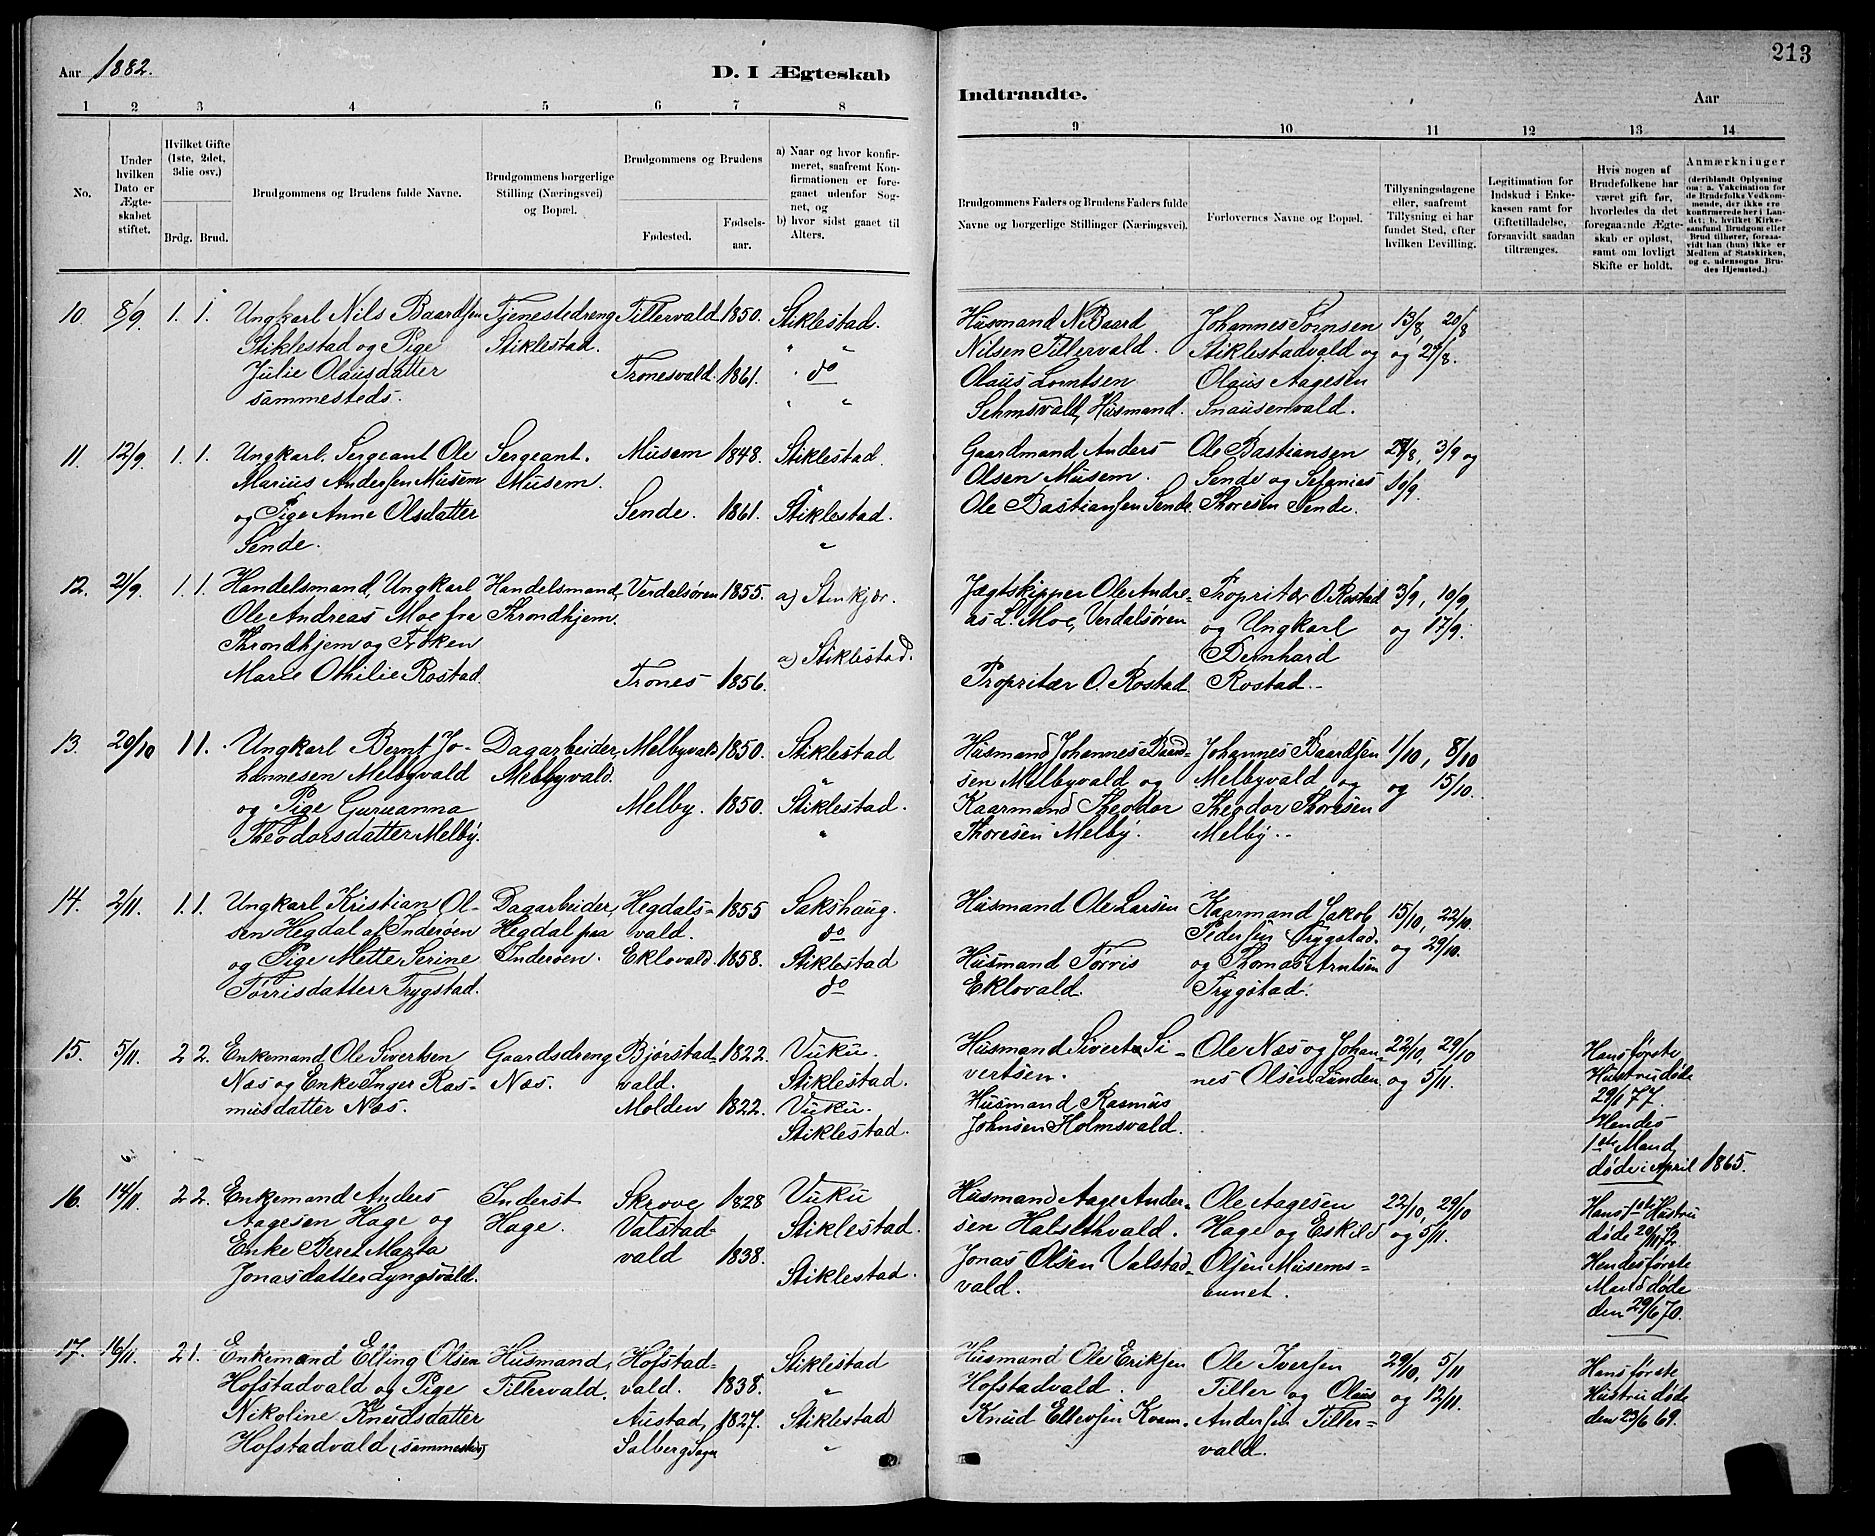 Aar 1882.
D. I Ægteskab
Indtraadte.
Aar
213
1 2 3 4 5 6 7 8 9 10 11 12 13 14
No.
Under hvilken Dato er Ægteskabet stiftet.
Hvilket Gifte (1ste, 2det, 3die osv.)
Brdg. Brud.
Brudgommens og Brudens fulde Navne.
Brudgommens borgerlige Stilling (Næringsvei) og Bopæl.
Brudgommens og Brudens
Fødested.
Fødselsaar.
a) Naar og hvor konfirmeret, saafremt Konfirmationen er foregaaet udenfor Sognet, og
b) hvor sidst gaaet til Alters.
Brudgommens Faders og Brudens Faders fulde Navne og borgerlige Stillinger (Næringsvei).
Forlovernes Navne og Bopæl.
Tillysningsdagene eller, saafremt Tillysning ei har fundet Sted, efter hvilken Bevilling.
Legitimation for Indskud i Enkekassen samt for Giftetilladelse, forsaavidt saadan tiltrænges.
Hvis nogen af Brudefolkene har været gift før, hvorledes da det foregaaende Ægteskab er opløst, samt om lovligt Skifte er holdt.
Anmærkninger (deriblandt Oplysning om: a. Vakcination for de Brudefolks Vedkommende, der ikke ere konfirmerede her i Landet; b. hvilket Kirkesamfund Brudgom eller Brud tilhører, forsaavidt han (hun) ikke er Medlem af Statskirken, og c. udensogns Brudes Hjemsted.)
10. 8/9 1. 1.
Ungkarl Nils Baardsen
Stiklestad og Pige
Julie Olausdatter
sammesteds.
Tjenestedreng
Stiklestad.
Tillervald 1850.
Tronesvald. 1861.
Stiklestad.
" "
do
" "
Husmand Baard
Nilsen Tillervald.
Olaus Lorntsen
Sehmsvald, Husmand.
Johannes Sørnsen
Stiklestadvald og
Olaus Aagesen
Snausenvald.
13/8, 20/8
og 27/8.
11. 12/9 1. 1.
Ungkarl. Sergeant Ole
Marius Andersen Musem
og Pige Anne Olsdatter
Sende.
Sergeant.
Musem.
Musem 1848.
Sende. 1861.
Stiklestad.
"
Stiklestad.
"
Gaardmand Anders
Olsen Musem.
Ole Bastiansen Sende.
Ole Bastiansen
Sende og Sefanias
Thoresen Sende.
27/8, 3/9 og
10/9.
12. 21/9 1. 1.
Handelsmand, Ungkarl
Ole Andreas Moe fra
Throndhjem og Frøken
Marie Othilie Rostad.
Handelsmand,
Throndhjem.
Verdalsøren 1855.
Trones 1856.
a) Stenkjær.
a) Stiklestad.
Jægtskipper Ole Andre-
as L. Moe, Verdalsøren
Propritær O. Rostad.
Propritær O. Rostad
og Ungkarl
Bernhard
Rostad.
3/9, 10/9,
og 17/9.
13. 20/10 1 1.
Ungkarl Bernt Jo-
hannesen Melbyvald
og Pige Guruanna
Theodorsdatter Melby.
Dagarbeider,
Melbyvald.
Melbyvald 1850.
Melby. 1850.
Stiklestad
"
Stiklestad.
"
Husmand Johannes Baard-
sen Melbyvald og
Kaarmand Theodor
Thoresen Melby.
Johannes Baardsen
Melbyvald og
Theodor Thoresen
Melby.
1/10, 8/10
og 15/10.
14. 2/11. 1. 1.
Ungkarl Kristian Ol-
sen Hegdal af Inderøen
og Pige Mette Serine
Tørrisdatter Trygstad.
Dagarbeider,
Hegdal paa
Inderøen.
Hegdals-
vald. 1855
Eklovald. 1858.
Sakshaug.
do
Stiklestad
do
Husmand Ole Larsen
Husmand Tørris
Eklovald.
Kaarmand Jakob
Pedersen Trygstad.
og Thomas Arntsen
Trygstad.
15/10, 22/10.
og 29/10.
15. 5/11. 2 2.
Enkemand Ole Sivertsen
Næs og Enke Inger Ras-
musdatter Næs.
Gaardsdreng
Næs.
Bjørstad-
vald. 1822.
Molden 1822.
Vuku.
Stiklestad.
Vuku.
Stiklestad.
Husmand Sivert Si-
vertsen.
Husmand Rasmus
Johnsen Holmsvald.
Ole Næs og Johan-
nes Olsen Lunden.
22/10, 29/10
og 5/11.
Hans første
Hustru døde
29/1 77.
Hendes
1ste Mand
døde i April 1865.
16. 14/11. 2 2.
Enkemand Anders
Aagesen Hage og
Enke Beret Marta
Jonasdatter Lyngsvald.
Inderst
Hage.
Skrove 1828
Valstad-
vald 1838.
Vuku
Stiklestad.
Stiklestad.
Husmand Aage Ander-
sen Halsethvald.
Jonas Olsen Valstad-
vald.
Ole Aagesen
Hage og Eskild
Olsen Musems-
eunet.
22/10, 29/10
og 5/11.
Hans 1ste Hustru
døde 20/11 72.
Hendes første
Mand døde
den 29/6 70.
17. 16/11. 2 1.
Enkemand Elling Olsen
Hofstadvald og Pige
Nikoline Knudsdatter
Hofstadvald (sammesteds)
Husmand,
Tillervald.
Hofstad-
vald. 1838.
Austad, 1827.
Salberg Sogn
Stiklestad
"
Stiklestad
"
Husmand Ole Eriksen
Hofstadvald.
Knud Ellevsen Kvam.
Ole Iversen
Tiller og Olaus
Andersen Tiller-
vald.
29/10, 5/11
og 12/11.
Hans første
Hustru døde
den 23/6 69.